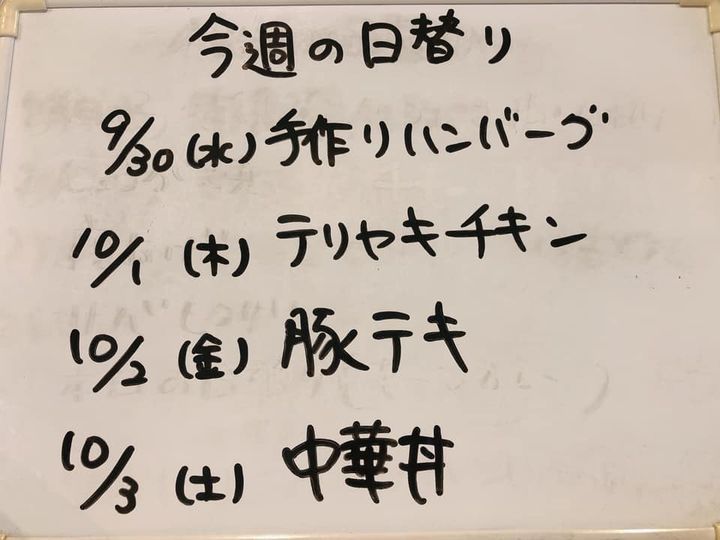 今週の日替り
9/30(水)手作りハンバーグ
10/1(木)テリヤキチキン
10/2(金)豚テキ
10/3(土)中華丼